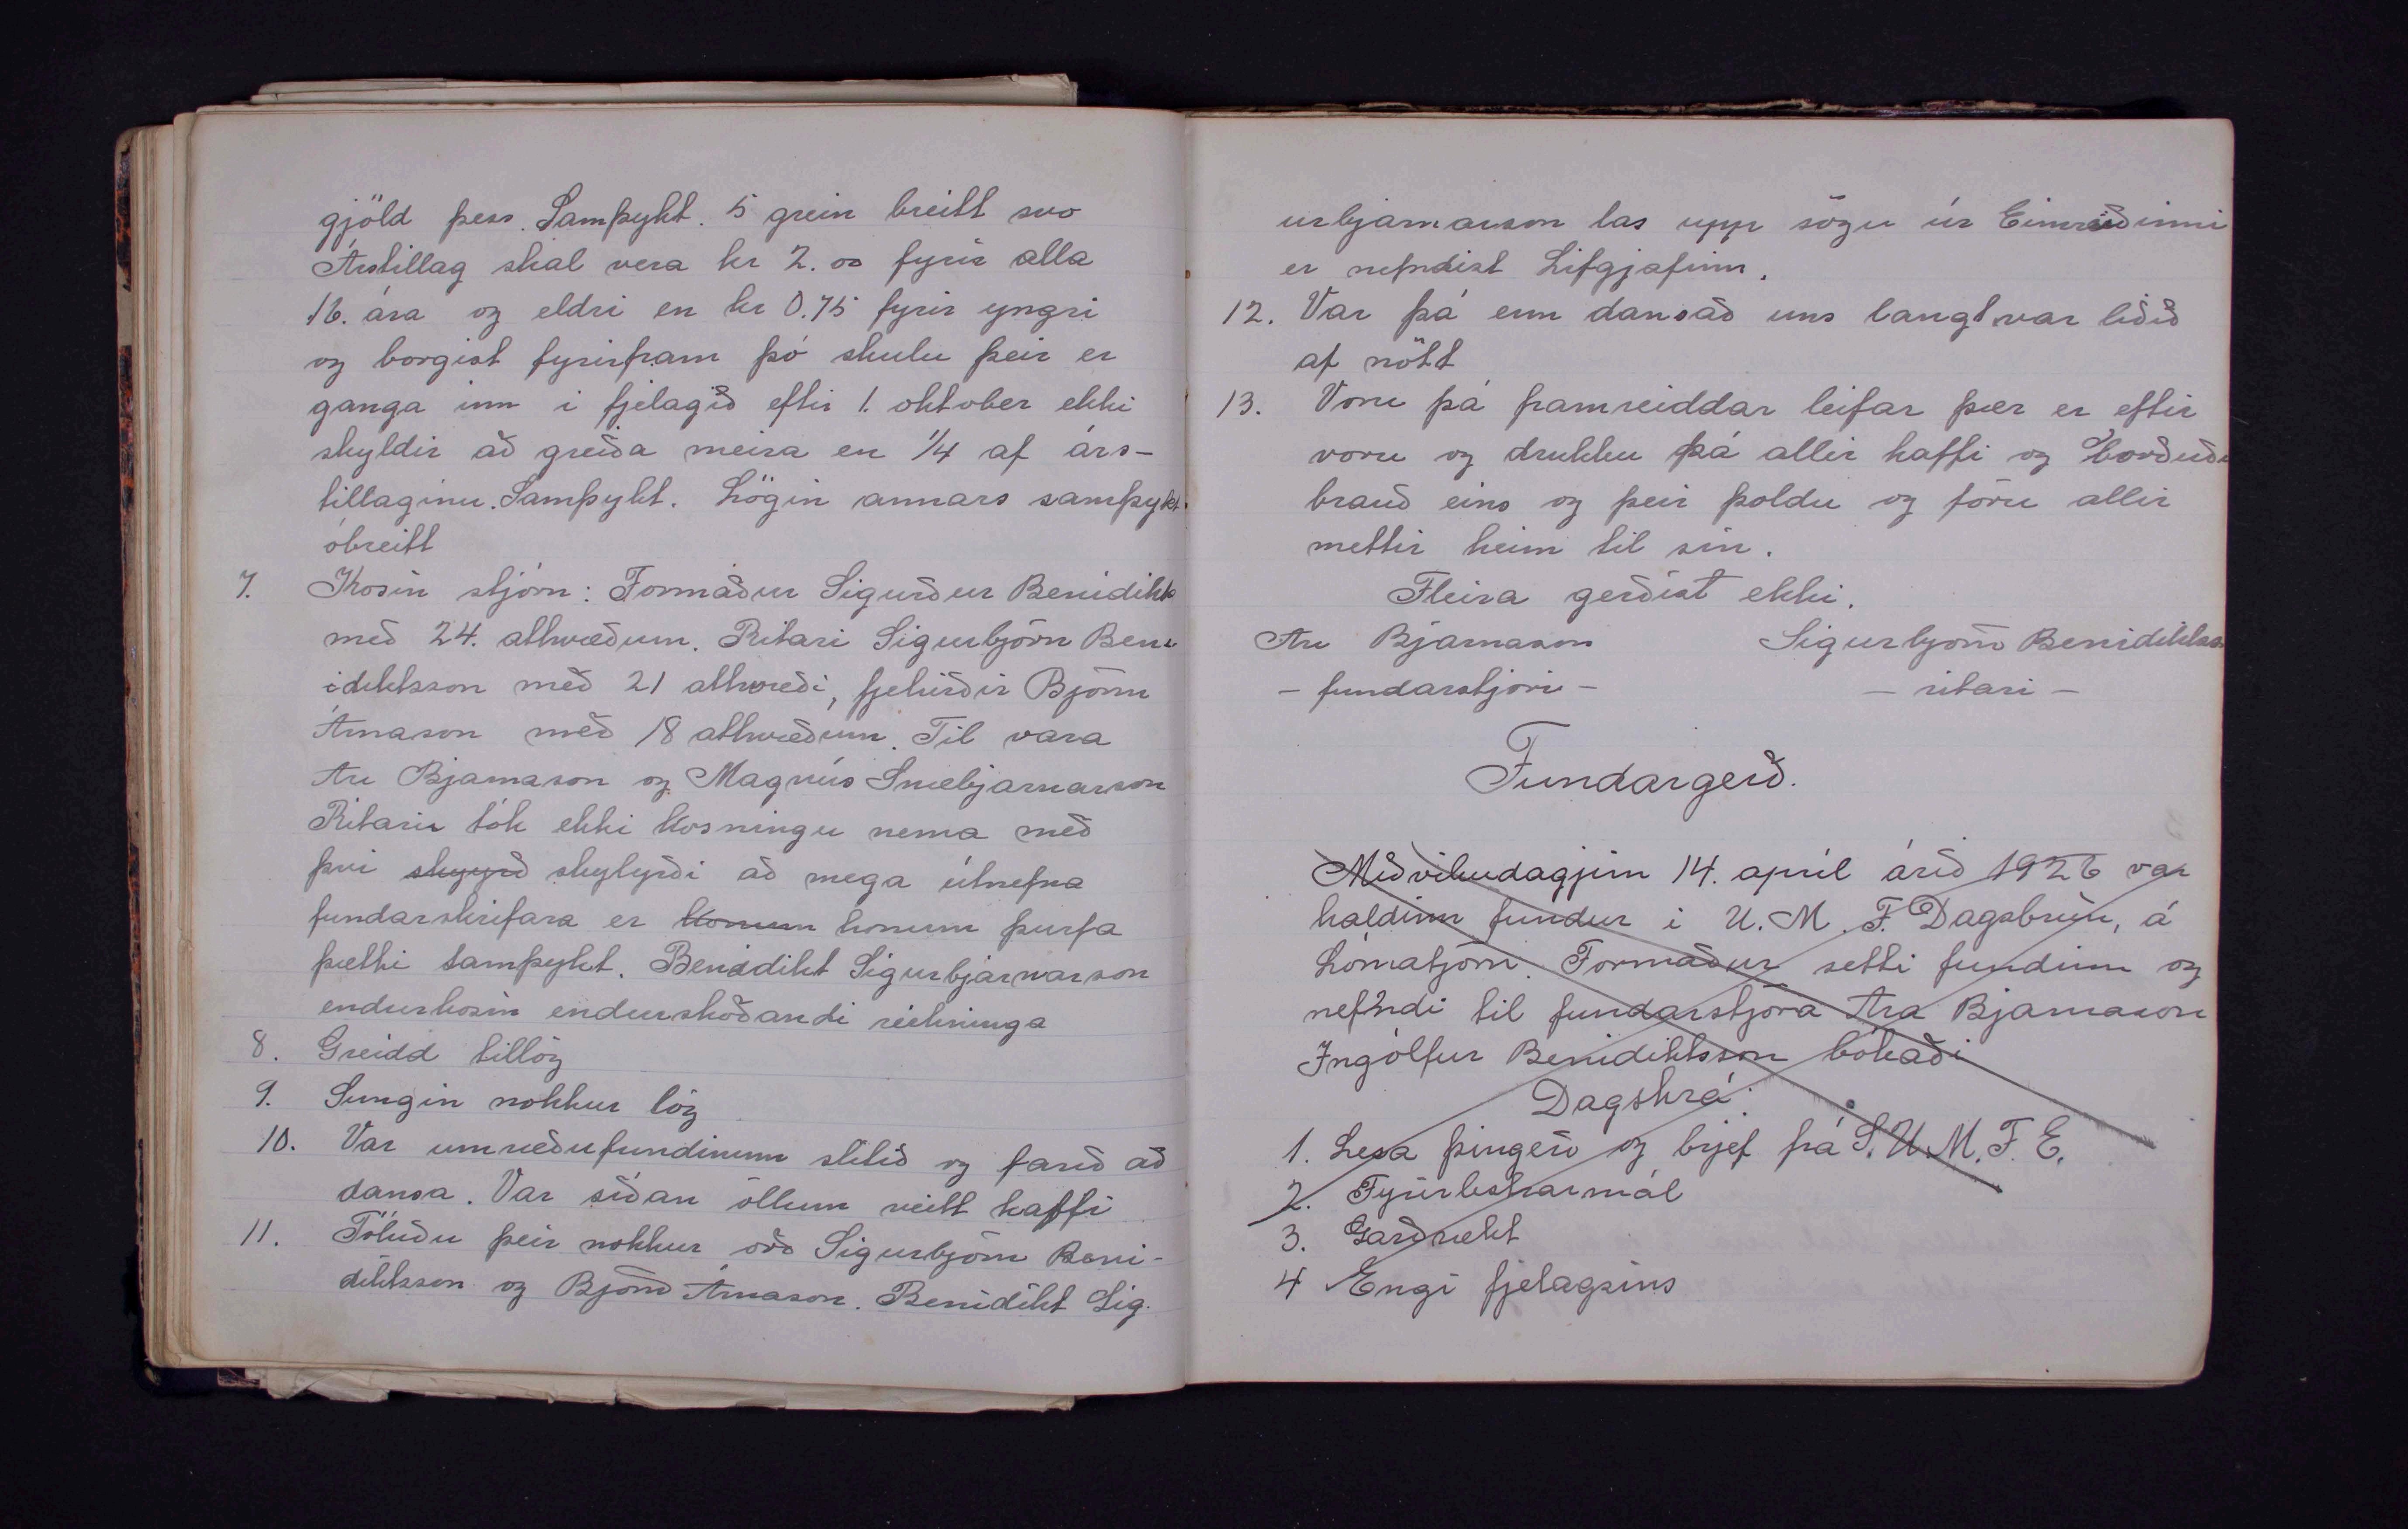 gjöld þess. Samþykt. 5 grein breitt svo
Árstillag skal vera kr 2.00 fyrir alla
16. ára og eldri en kr 0.75 fyrir yngri
og borgist fyrirfram þó skulu þeir er
ganga inn i fjelagið eftir 1. oktober ekki
skyldir að greiða meira en 1/4 af árs-
tillaginu. Samþykt. Lögin annars samþykt.
óbreitt
7. Kosin stjórn: Formaður Sigurður Benidikts
með 24. atkvæðum. Ritari Sigurbjörn Ben-
idiktsson með 21 atkvæði, fjehirðir Björn
Árnason með 18 atkvæðum. Til vara
Ari Bjarnason og Magnús Snæbjarnarson
Ritari tók ekki kosningu nema með
því skyyrð skylyrði að mega útnefna
fundarskrifara er konum honum þurfa
þætti samþykt. Benidikt Sigurbjarnarson
endurkosin endurskoðandi reikninga
8. Greidd tillög
9. Sungin nokkur lög
10. Var umræðufundinum slitið og farið að
dansa. Var síðan öllum veitt kaffi
11. Töluðu þeir nokkur orð Sigurbjörn Beni-
diktsson og Björn Árnason. Benidikt Sig-
urbjarnarson las upp sögu úr Eimreiðinni
er nefndist Lífgjafinn.
12. Var þá enn dansað uns langt var liðið
af nótt
13. Voru þá framreiddar leifar þær er eftir
voru og drukku þá allir kaffi og borðuðu
brauð eins og þeir þoldu og fóru allir
mettir heim til sín.
Fleira gerðist ekki.
Ari Bjarnason Sigurbjörn Benidiktsson
- fundarstjóri - - ritari -
Fundargerð.
Miðvikudagjinn 14. apríl árið 1926 var
haldinn fundur i U. M. F. Dagsbrún, á
Lómatjörn. Formaður setti fundinn og
nefndi til fundarstjóra Ara Bjarnason
Ingólfur Benidiktsson bókaði
Dagskrá.
1. Lesa þingerð og brjef frá S. U. M. F. E.
2. Fyrirlestrarmál
3. Garðrækt
4 Engi fjelagsins